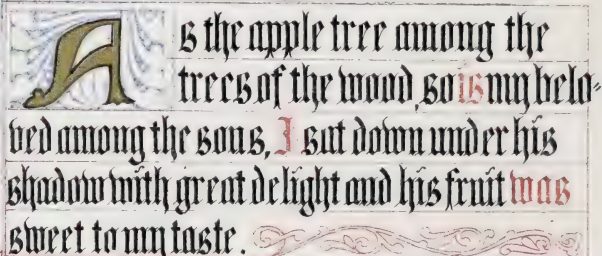 As the apple tree among the
trees of the wood, so is my belo=
ved among the sons, I sat down under his
shadow with great delight and his fruit was
sweet to my taste.